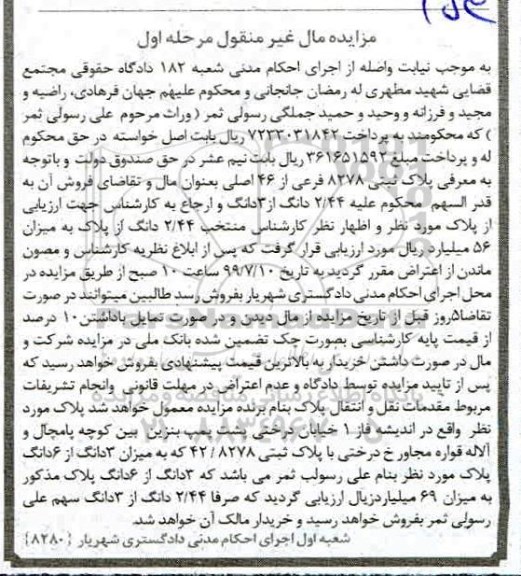 مزایده مال غیر منقول مرحله اول
به موجب نیابت واصله از اجرای احکام مدنی شعبه ۱۸۲ دادگاه حقوقی مجتمع
قضایی شهید مطهری له رمضان جانجانی و محکوم علیهم جهان فرهادی، راضیه و
مجید و فرزانه و وحید و حمید جملگی رسولی ثمر ( وراث مرحوم علی رسولی ثمر
) که محکومند به پرداخت ۷۲۳۳۰۳۱۸۴۲ ریال بابت اصل خواسته در حق محکوم
له و پرداخت مبلغ ۳۶۱۶۵۱۵۹۲ ریال بابت نیم عشر در حق صندوق دولت و باتوجه
به معرفی پلاک ثبتی ۸۲۷۸ فرعی از ۴۶ اصلی بعنوان مال و تقاضای فروش آن به
قدر السهم محکوم علیه ۲/۴۴ دانگ از ۳دانگ و ارجاع به کارشناس جهت ارزیابی
از پلاک مورد نظر و اظهار نظر کارشناس منتخب ۲/۴۴ دانگ از پلاک به میزان
۵۶ میلیارد ریال مورد ارزیابی قرار گرفت که پس از ابلاغ نظریه کارشناس و مصون
ماندن از اعتراض مقرر گردید به تاریخ ۹۹/۷/۱۰ ساعت ۱۰ صبح از طریق مزایده در
محل اجرای احکام مدنی دادگستری شهریار بفروش رسد طالبین میتوانند در صورت
تقاضا۵روز قبل از تاریخ مزایده از مال دیدن و در صورت تمایل باداشتن۱۰ درصد
از قیمت پایه کارشناسی بصورت چک تضمین شده بانک ملی در مزایده شرکت و
مال در صورت داشتن خریدار به بالاترین قیمت پیشنهادی بفروش خواهد رسید که
پس از تایید مزایده توسط دادگاه و عدم اعتراض در مهلت قانونی وانجام تشریفات
مربوط مقدمات نقل و انتقال پلاک بنام برنده مزایده معمول خواهد شد پلاک مورد
نظر واقع در اندیشه فاز ۱ خیابان درختی پشت پمپ بنزین بین کوچه یامچال و
آلاله قواره مجاور خ درختی با پلاک ثبتی ۸۲۷۸ / ۴۲ که به میزان ۳دانگ از ۶دانگ
پلاک مورد نظر بنام علی رسولب ثمر می باشد که ۳دانگ از ۶دانگ پلاک مذکور
به میزان ۶۹ میلیاردزیال ارزیابی گردید که صرفا ۲/۴۴ دانگ از ۳دانگ سهم علی
رسولی ثمر بفروش خواهد رسید و خریدار مالک آن خواهد شد.
شعبه اول اجرای احکام مدنی دادگستری شهریار {۸۲۸۰}